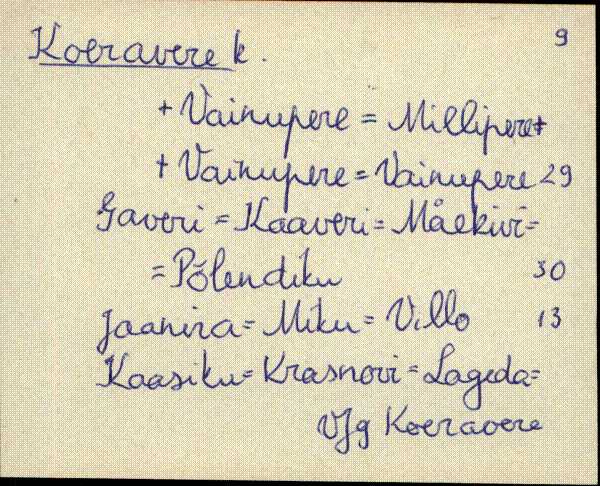 9
Koeravere k.
+ Vainupere = Millipere+
+ Vainupere = Vainupere 29
Gaveri = Kaaveri = Mäekivi =
= Põlendiku 30
Jaanira = Miku = Villo 13
Kaasiku = Krasnovi = Lageda =
Vfg Koeravere